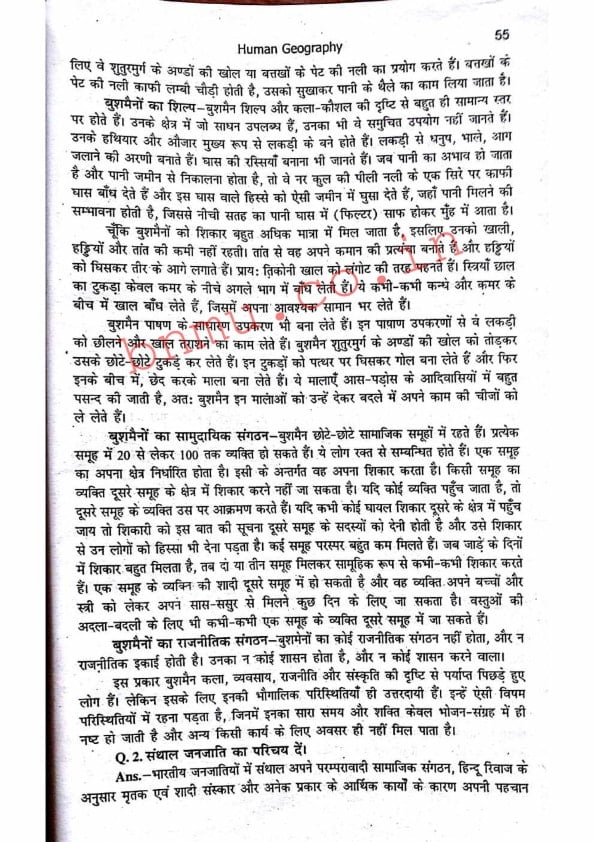 55
Human Geography
लिए वे शुतुरमुर्ग के अण्डों की खोल या बत्तखों के पेट की नली का प्रयोग करते हैं। बत्तखों के
पेट की नली काफी लम्बी चौड़ी होती है, उसको सुखाकर पानी के थैले का काम लिया जाता है।
बुशमैनों का शिल्प–बुशमैन शिल्प और कला-कौशल की दृष्टि से बहुत ही सामान्य स्तर
पर होते हैं। उनके क्षेत्र में जो साधन उपलब्ध हैं, उनका भी वे समुचित उपयोग नहीं जानते हैं।
उनके हथियार और औजार मुख्य रूप से लकड़ी के बने होते हैं। लकड़ी से धनुष, भाले, आग
जलाने की अरणी बनाते हैं। घास की रस्सियाँ बनाना भी जानते हैं। जब पानी का अभाव हो जाता
है और पानी जमीन से निकालना होता है, तो वे नर कुल की पीली नली के एक सिरे पर काफी
घास बाँध देते हैं और इस घास वाले हिस्से को ऐसी जमीन में घुसा देते हैं, जहाँ पानी मिलने की
सम्भावना होती है, जिससे नीची सतह का पानी घास में (फिल्टर) साफ होकर मुँह में आता है।
चूँकि बुशमैनों को शिकार बहुत अधिक मात्रा में मिल जाता है, इसलिए उनको खाली,
हड्डियों और तांत की कमी नहीं रहती। तांत से वह अपने कमान की प्रत्यंचा बनाते हैं और हड्डियों
को घिसकर तीर के आगे लगाते हैं। प्राय: तिकोनी खाल को लंगोट की तरह पहनते हैं। स्त्रियाँ छाल
का टुकड़ा केवल कमर के नीचे अगले भाग में बाँध लेती हैं। ये कभी-कभी कन्धे और कमर के
बीच में खाल बाँध लेते हैं, जिसमें अपना आवश्यक सामान भर लेते हैं।
बुशमैन पाषण के साधारण उपकरण भी बना लेते हैं। इन पाषाण उपकरणों से वे लकड़ी
को छीलने और खाल तराशने का काम लेते हैं। बुशमैन शुतुरमुर्ग के अण्डों की खोल को तोड़कर
उसके छोटे-छोटे टुकड़े कर लेते हैं। इन टुकड़ों को पत्थर पर घिसकर गोल बना लेते हैं और फिर
इनके बीच में, छेद करके माला बना लेते हैं। ये मालाएँ आस-पड़ोस के आदिवासियों में बहुत
पसन्द की जाती है, अत: बुशमैन इन मालाओं को उन्हें देकर बदले में अपने काम की चीजों को
ले लेते हैं।
बुशमैनों का सामुदायिक संगठन–बुशमैन छोटे-छोटे सामाजिक समूहों में रहते हैं। प्रत्येक
समूह में 20 से लेकर 100 तक व्यक्ति हो सकते हैं। ये लोग रक्त से सम्बन्धित होते हैं। एक समूह
का अपना क्षेत्र निर्धारित होता है। इसी के अन्तर्गत वह अपना शिकार करता है। किसी समूह का
व्यक्ति दूसरे समूह के क्षेत्र में शिकार करने नहीं जा सकता है। यदि कोई व्यक्ति पहुँच जाता है, तो
दूसरे समूह के व्यक्ति उस पर आक्रमण करते हैं। यदि कभी कोई घायल शिकार दूसरे के क्षेत्र में पहुँच
जाय तो शिकारी को इस बात की सूचना दूसरे समूह के सदस्यों को देनी होती है और उसे शिकार
से उन लोगों को हिस्सा भी देना पड़ता है। कई समूह परस्पर बहुत कम मिलते हैं। जब जाड़े के दिनों
में शिकार बहुत मिलता है, तब दो या तीन समूह मिलकर सामूहिक रूप से कभी-कभी शिकार करते
हैं। एक समूह के व्यक्ति की शादी दूसरे समूह में हो सकती है और वह व्यक्ति अपने बच्चों और
स्त्री को लेकर अपने सास-ससुर से मिलने कुछ दिन के लिए जा सकता है। वस्तुओं की
अदला-बदली के लिए भी कभी-कभी एक समूह के व्यक्ति दूसरे समूह में जा सकते हैं।
बुशमैनों का राजनीतिक संगठन–बुशमेनों का कोई राजनीतिक संगठन नहीं होता, और न
राजनीतिक इकाई होती है। उनका न कोई शासन होता है, और न कोई शासन करने वाला।
इस प्रकार बुशमैन कला, व्यवसाय, राजनीति और संस्कृति की दृष्टि से पर्याप्त पिछड़े हुए
लोग हैं। लेकिन इसके लिए इनकी भौगालिक परिस्थितियाँ ही उत्तरदायी हैं। इन्हें ऐसी विषम
परिस्थितियों में रहना पड़ता है, जिनमें इनका सारा समय और शक्ति केवल भोजन-संग्रह में ही
नष्ट हो जाती है और अन्य किसी कार्य के लिए अवसर ही नहीं मिल पाता है।
Q. 2. संथाल जनजाति का परिचय दें।
Ans.–भारतीय जनजातियों में संथाल अपने परम्परावादी सामाजिक संगठन, हिन्दू रिवाज के
अनुसार मृतक एवं शादी संस्कार और अनेक प्रकार के आर्थिक कार्यों के कारण अपनी पहचान
bnmu.co.in